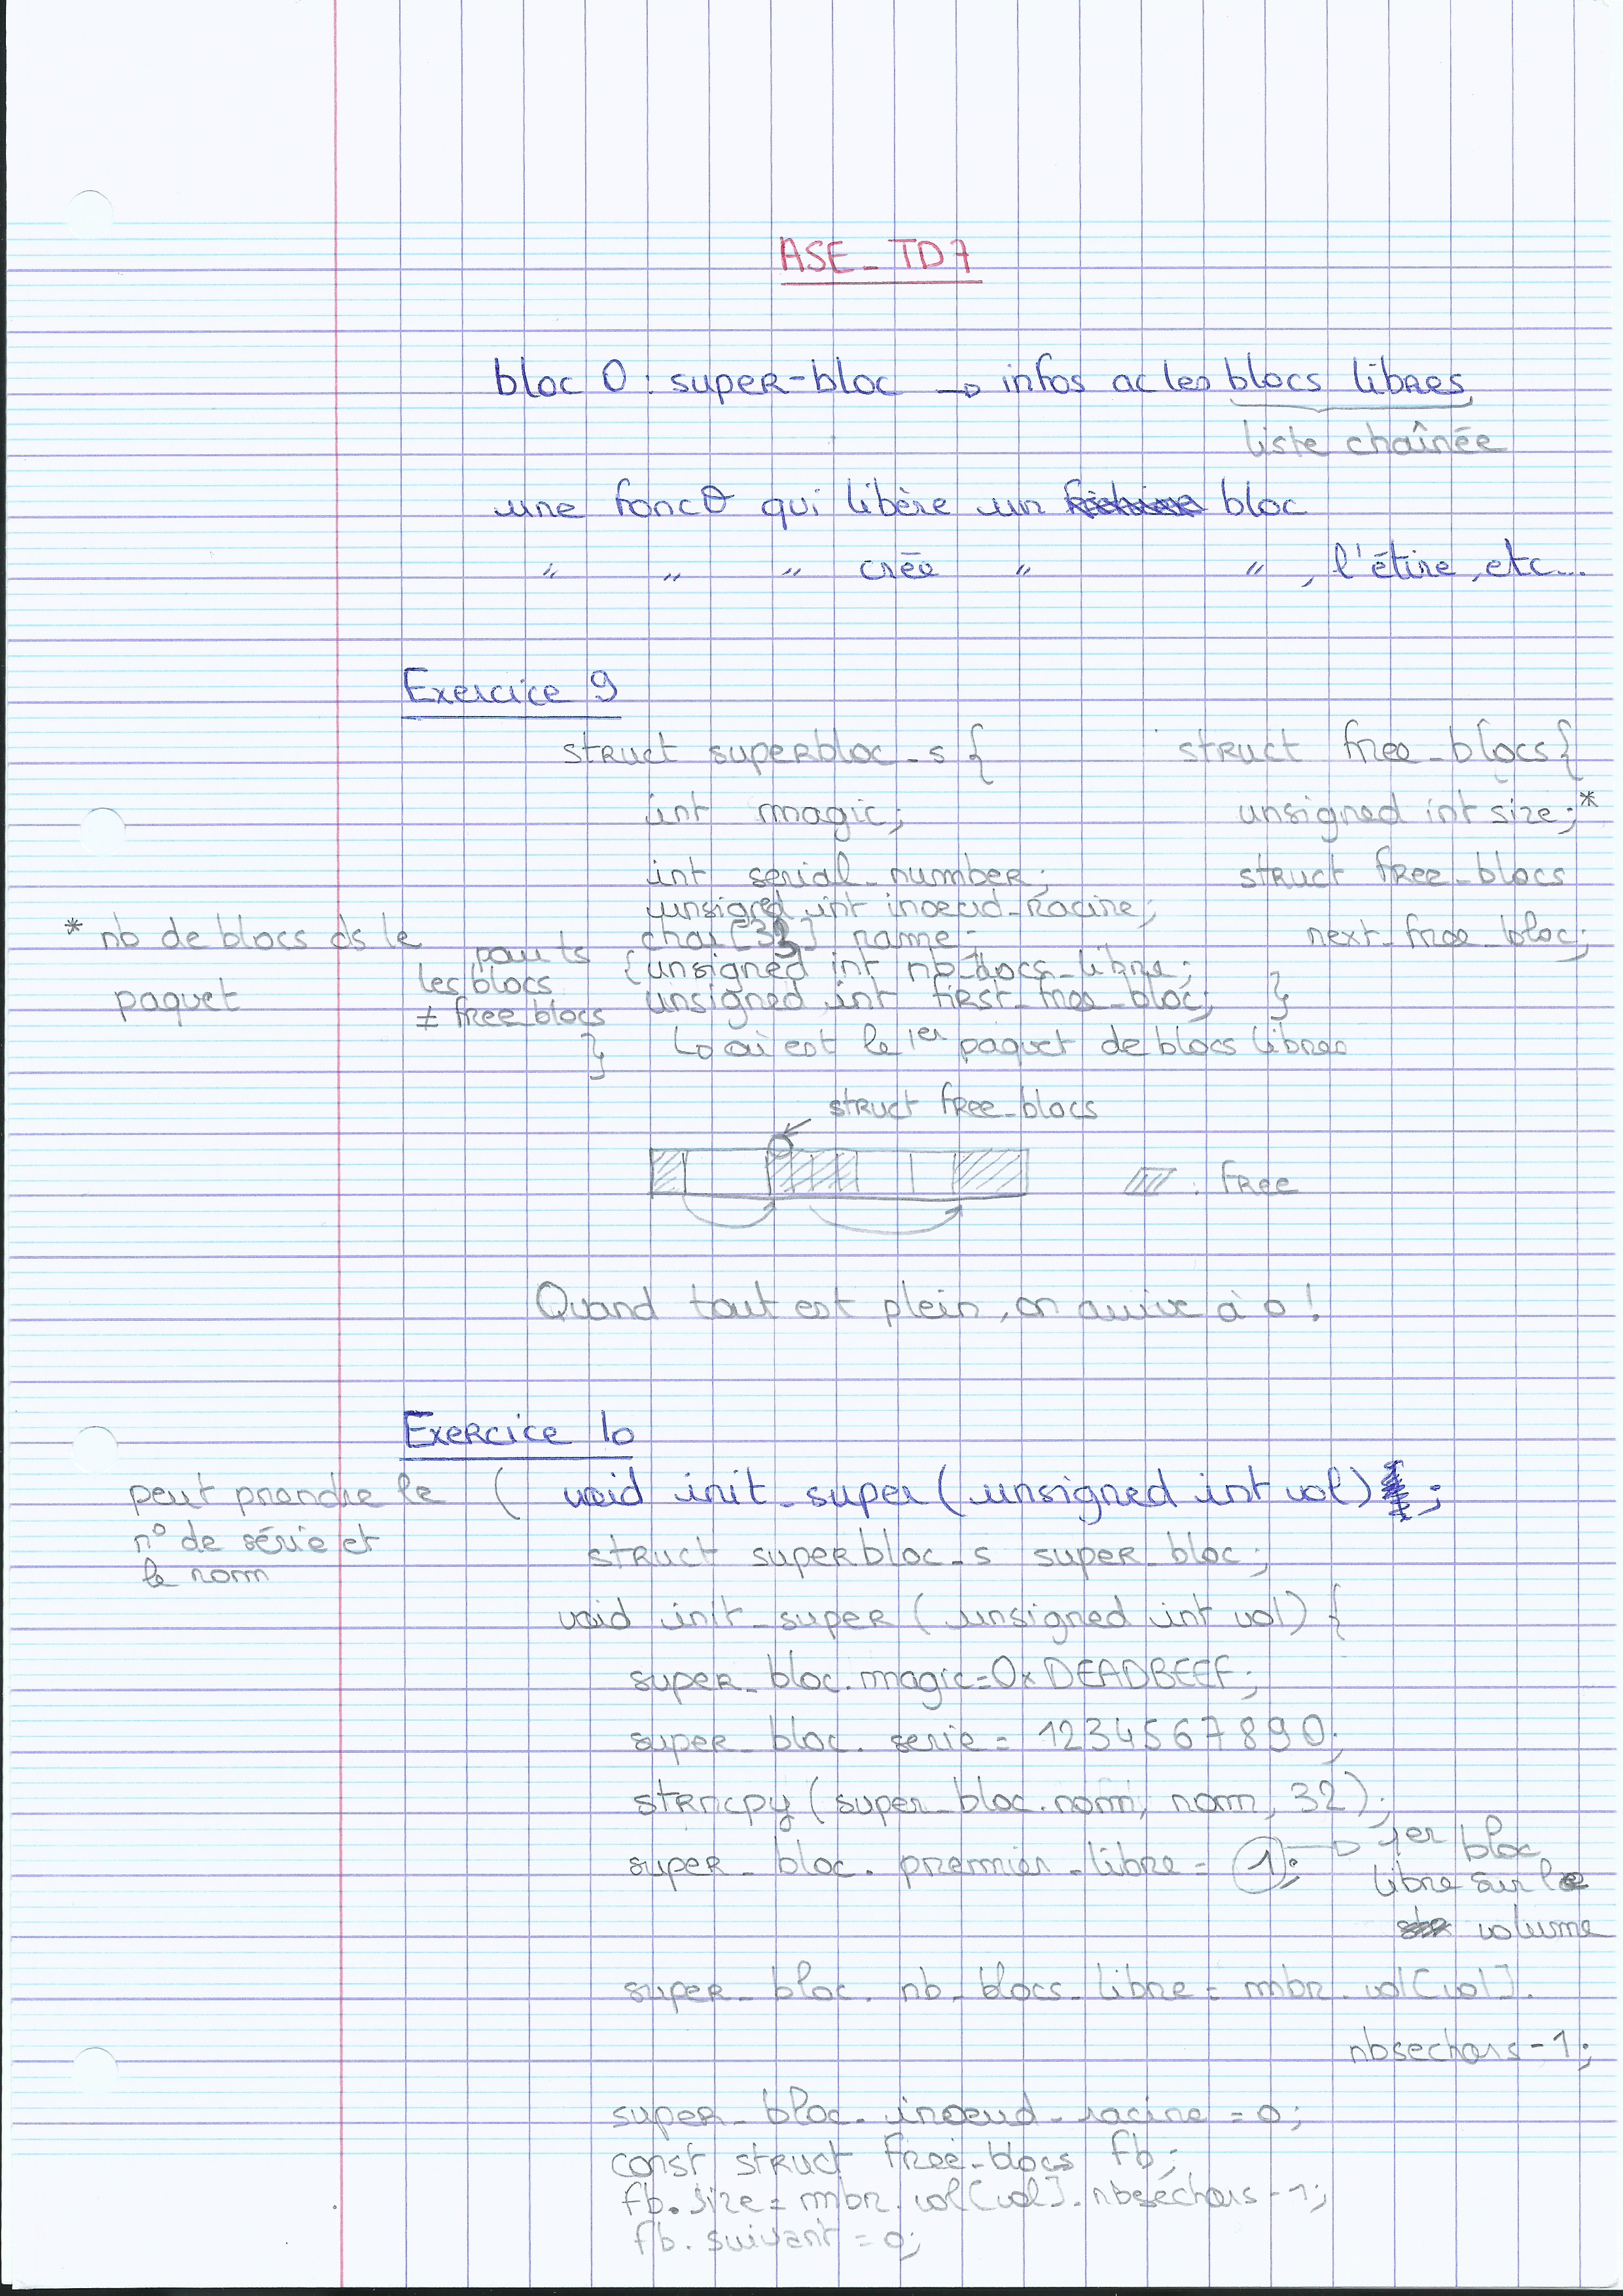 ASE_TD7
bloc 0 : super-bloc → infos ac les blocs libres
liste chaînée
une foncθ qui libère un bloc
" " " crée " " , l'étire, etc...
Exercice 9
struct superbloc_s {
int magic;
int serial_number;
unsigned int inoeud_racine;
char[32] name;
unsigned int nb_blocs_libre;
unsigned int first_free_bloc;
}
↳ où est le 1er paquet de blocs libres
pour ts
les blocs
≠ free_blocs
struct free_blocs {
unsigned int size; *
struct free_blocs
next_free_bloc;
}
* nb de blocs ds le
paquet
struct free_blocs
: free
Quand tout est plein, on arrive à 0 !
Exercice 10
peut prendre le
n° de série et
le nom
( void init_super (unsigned int vol) ;
struct superbloc_s super_bloc;
void init_super (unsigned int vol) {
super_bloc.magic=0xDEADBEEF;
super_bloc.serie = 1234567890;
strncpy (super_bloc.nom, nom, 32);
super_bloc.premier_libre = 1; → 1er bloc
libre sur le
volume
super_bloc.nb_blocs_libre = mbr.vol[vol].
nbsectors-1;
super_bloc.inoeud_racine = 0;
const struct free_blocs fb;
fb.size = mbr.vol[vol].nbsectors-1;
fb.suivant = 0;